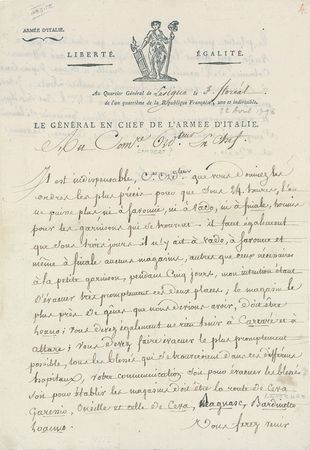 ARMÉE D'ITALIE.
LIBERTÉ. ÉGALITÉ.
Au Quartier Général de Lesegno le 3 floréal
de l'an quatrième de la République Française, une et indivisible.
22 avril 1796
LE GÉNÉRAL EN CHEF DE L'ARMÉE D'ITALIE.
Au Com.re Ord.teur En Chef
LAMBERT
Il est indispensable, C. Ord.teur que vous donniez les
ordres les plus précis pour que sous 24 heures, l'on
ne puise plus ni à Savonne, ni à Vado, ni à finale, hormis
pour les garnisons qui s'y trouvent il faut également
que sous trois jours il n'y ait à Vado, à Savonne et
même à finale aucuns magasins, autres que ceux nécessaires
à la petite garnison, pendant Cinq jours, mon intention étant
d'évacuer très promptement ces deux places; le magasin le
plus près de gènes que nous devions avoir, doit être
Loano; vous devez également ne rien tenir à Carcaré et à
altare; vous devez faire évacuer le plus promptement
possible, tous les blessés qui se trouveroient dans ces différens
hopitaux, votre communication soit pour évacuer les blessés
soit pour établir les magasins doit être la route de Ceva
Garessio, Oneille et celle de Ceva, Bardinetto
Loano.
Vous ferez venir